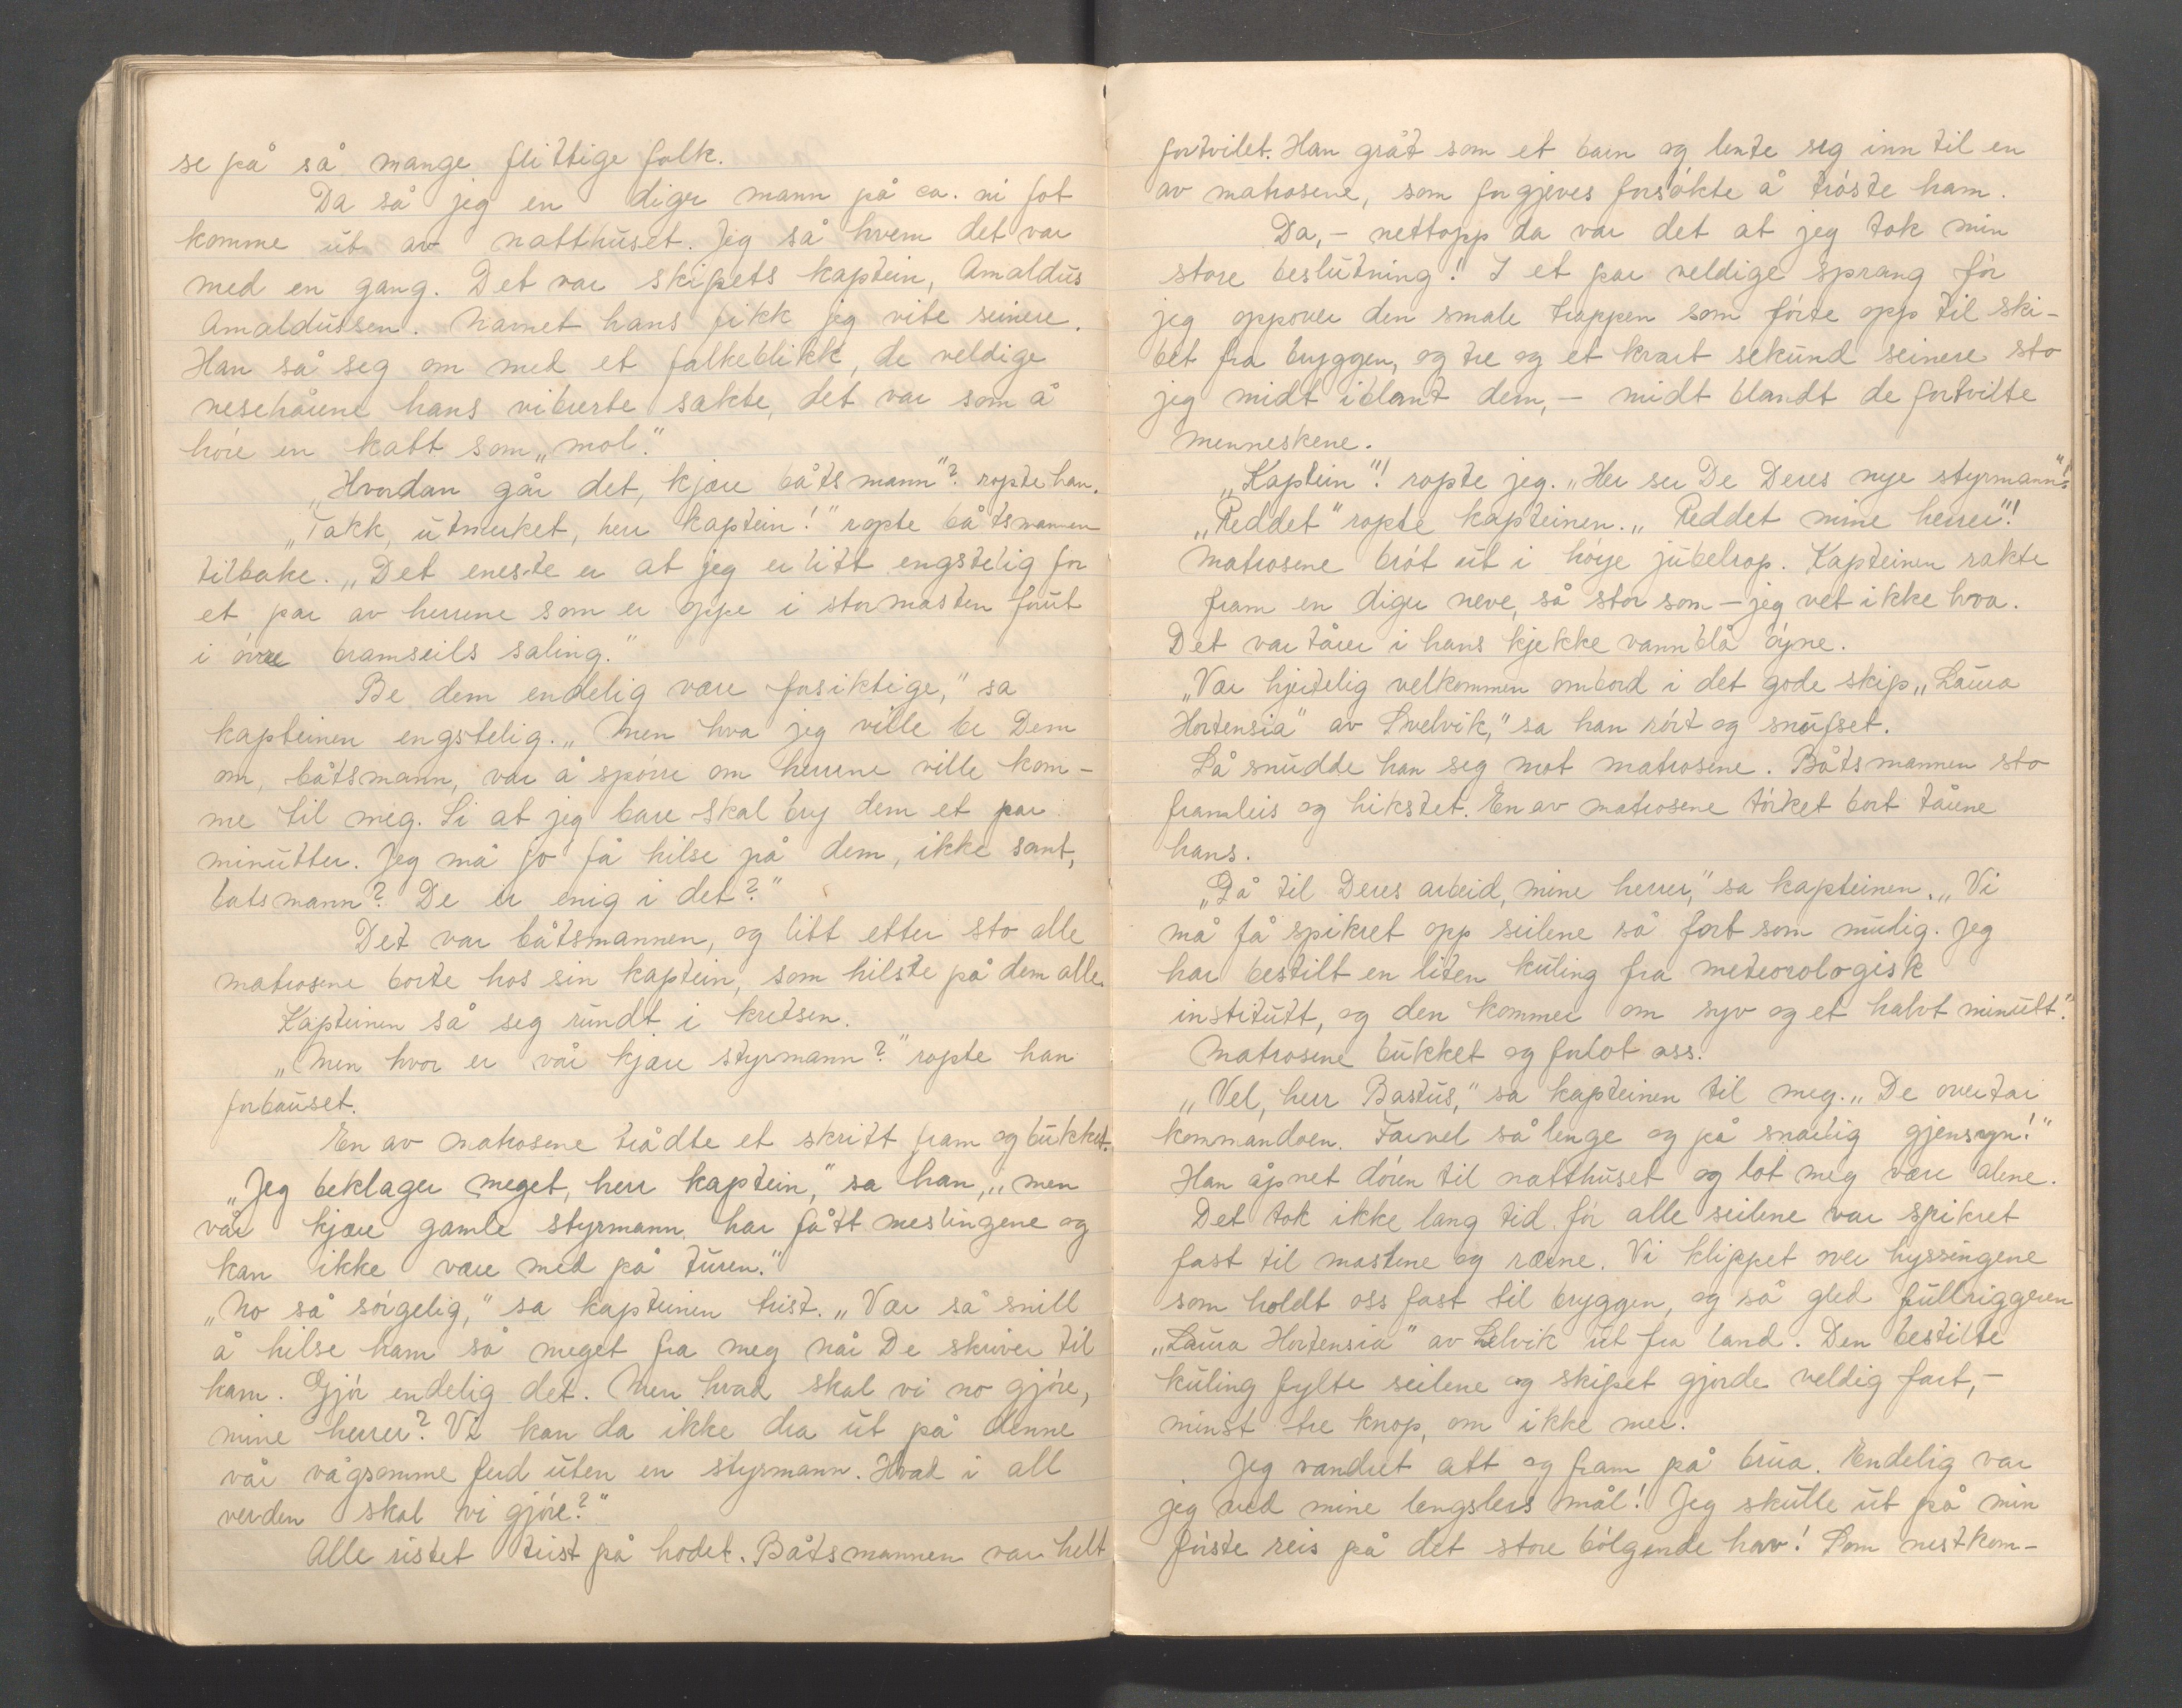 se på så mange flittige folk.
Da så jeg en diger mann på ca. ni fot
komme ut av natthuset. Jeg så hvem det var
med en gang. Det var skipets kaptein, Amaldus
Amaldussen. Navnet hans fikk jeg vite seinere.
Han så seg om med et falkeblikk, de veldige
nesehårene hans vibrerte sakte, det var som å
høre en katt som „mol."
„Hvordan går det, kjære båtsmann"? ropte han.
„Takk, utmerket, herr kaptein!" ropte båtsmannen
tilbake. „Det eneste er at jeg er litt engstelig for
et par av herrene som er oppe i stormasten forut
i øvre bramseils saling."
Be dem endelig være forsiktige," sa
kapteinen engstelig. „Men hva jeg ville be Dem
om, båtsmann, var å spørre om herrene ville kom-
me til meg. Si at jeg bare skal bry dem et par
minutter. Jeg må jo få hilse på dem, ikke sant,
batsmann? De er enig i det?"
Det var båtsmannen, og litt etter sto alle
matrosene borte hos sin kaptein, som hilste på dem alle.
Kapteinen så seg rundt i kretsen.
„Men hvor er vår kjære styrmann?" ropte han
forbauset.
En av matrosene trådte et skritt fram og bukket.
„Jeg beklager meget, herr kaptein," sa han, „men
vår kjære gamle styrmann har fått meslingene og
kan ikke være med på turen."
„No så sørgelig," sa kapteinen trist. „Vær så snill
å hilse ham så meget fra meg når De skriver til
ham. Gjør endelig det. Men hvad skal vi no gjøre,
mine herrer? Vi kan da ikke dra ut på denne
vår vågsomme ferd uten en styrmann. Hvad i all
verden skal vi gjøre?"
Alle ristet trist på hodet. Båtsmannen var helt
fortvilet. Han gråt som et barn og lente seg inn til en
av matrosene, som forgjeves forsøkte å trøste ham.
Da, – nettopp da var det at jeg tok min
store beslutning! I et par veldige sprang før
jeg oppover den smale trappen som førte opp til ski-
bet fra bryggen, og tre og et kvart sekund seinere sto
jeg midt iblant dem, – midt blandt de fortvilte
menneskene.
„Kaptein"! ropte jeg. „Her ser De Deres nye styrmann"!
„Reddet" ropte kapteinen. „Reddet mine herrer"!
Matrosene brøt ut i høye jubelrop. Kapteinen rakte
fram en diger neve, så stor som – jeg vet ikke hva.
Det var tårer i hans kjekke vannblå øyne.
„Vær hjertelig velkommen ombord i det gode skip „Laura
Hortensia" av Svelvik," sa han rørt og snufset.
Så snudde han seg mot matrosene. Båtsmannen sto
framleis og hikstet. En av matrosene tørket bort tårene
hans.
„Gå til Deres arbeid, mine herrer," sa kapteinen. „Vi
må få spikret opp seilene så fort som mulig. Jeg
har bestilt en liten kuling fra meteorologisk
institutt, og den kommer om syv og et halvt minutt."
Matrosene bukket og forlot oss.
„Vel, herr Bastus," sa kapteinen til meg. „De overtar
kommandoen. Farvel så lenge og på snarlig gjensyn!"
Han åpnet døren til natthuset og lot meg være alene.
Det tok ikke lang tid før alle seilene var spikret
fast til mastene og rærne. Vi klippet over hyssingene
som holdt oss fast til bryggen, og så gled fullriggeren
„Laura Hortensia" av Selvik ut fra land. Den bestilte
kuling fylte seilene og skipet gjorde veldig fart, –
minst tre knop, om ikke mer.
Jeg vandret att og fram på brua. Endelig var
jeg ved mine lengslers mål! Jeg skulle ut på min
første reis på det store bølgende hav! Som nestkom-